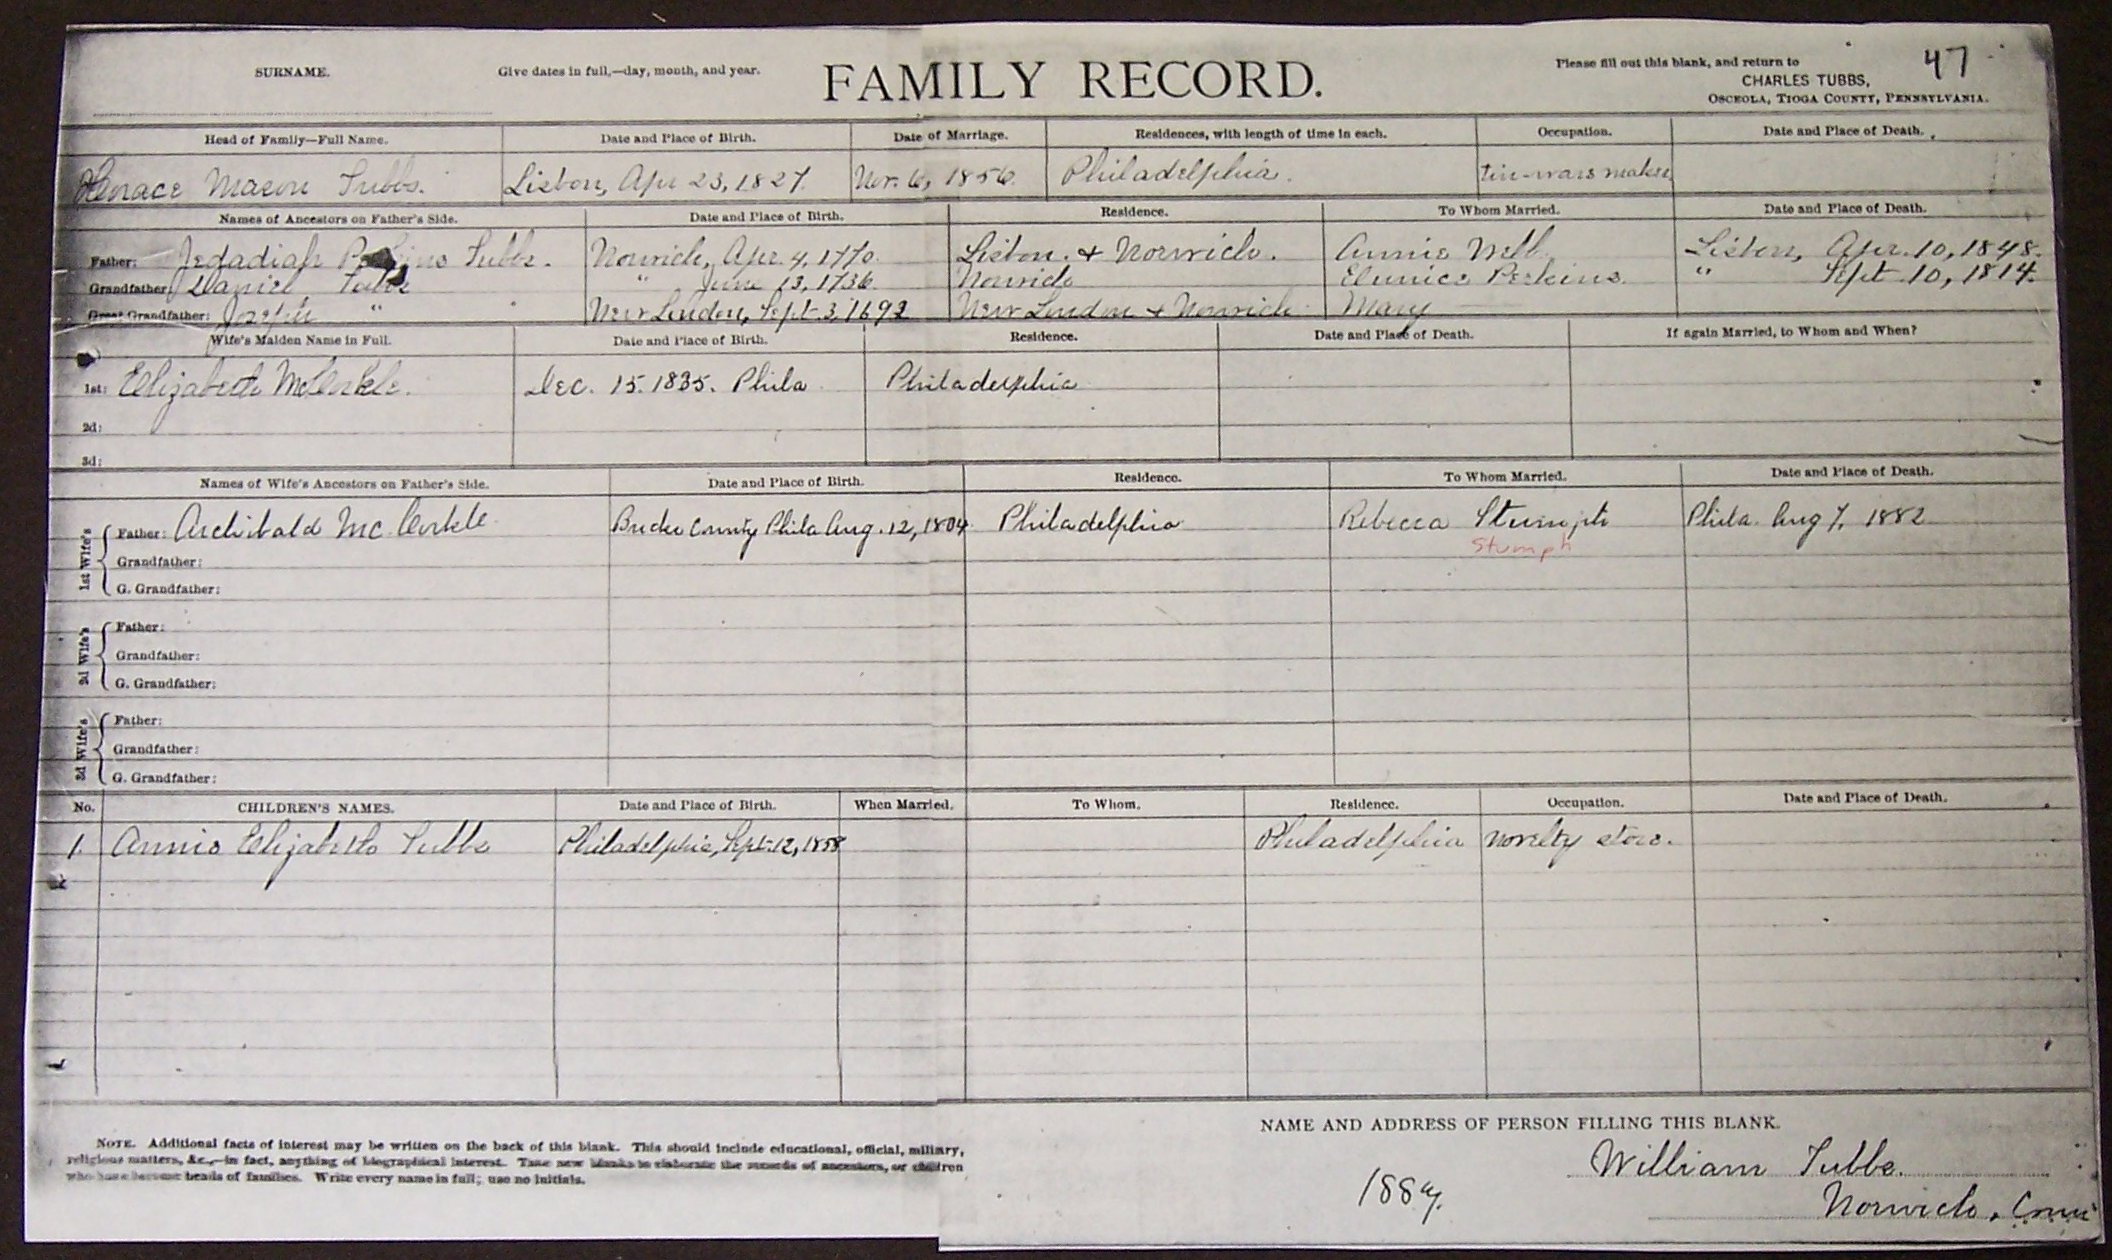 SURNAME. Give dates in full,—day, month, and year. FAMILY RECORD. Please fill out this blank, and return to 47
CHARLES TUBBS,
OSCEOLA, TIOGA COUNTY, PENNSYLVANIA.
Head of Family—Full Name. Date and Place of Birth. Date of Marriage. Residences, with length of time in each. Occupation. Date and Place of Death.
Horace Mason Tubbs. Lisbon, Apr 23, 1827. Nov. 6, 1856. Philadelphia. tin-ware maker
Names of Ancestors on Father's Side. Date and Place of Birth. Residence. To Whom Married. Date and Place of Death.
Father: Jedadiah Tubbs. Norwich, Apr. 4, 1770. Lisbon. + Norwich. Annie Webb. Lisbon, Apr. 10, 1848.
Grandfather: Daniel Tubbs " June 13, 1736 Norwich Eunice Perkins. " Sept. 10, 1814.
Great Grandfather: Joseph " New London, Sept. 3, 1692 New London + Norwich Mary
Wife's Maiden Name in Full. Date and Place of Birth. Residence. Date and Place of Death. If again Married, to Whom and When?
1st: Elizabeth McCorkle. Dec. 15. 1835. Phila Philadelphia
2d:
3d:
Names of Wife's Ancestors on Father's Side. Date and Place of Birth. Residence. To Whom Married. Date and Place of Death.
1st Wife's
Father: Archibald Mc Corkle Bucks County Phila Aug. 12, 1804 Philadelphia Rebecca Stumph Phila. Aug 7, 1882
Stumph
Grandfather:
G. Grandfather:
2d Wife's
Father:
Grandfather:
G. Grandfather:
3d Wife's
Father:
Grandfather:
G. Grandfather:
No. CHILDREN'S NAMES. Date and Place of Birth. When Married. To Whom. Residence. Occupation. Date and Place of Death.
1. Annie Elizabeth Tubbs Philadelphia, Sept. 12, 1858 Philadelphia Novelty store.
NAME AND ADDRESS OF PERSON FILLING THIS BLANK.
NOTE. Additional facts of interest may be written on the back of this blank. This should include educational, official, military,
religious matters, &c.,—in fact, anything of biographical interest. Take new blanks to elaborate the records of ancestors, or children
who have become heads of families. Write every name in full; use no initials.
William Tubbs.
Norwich, Conn